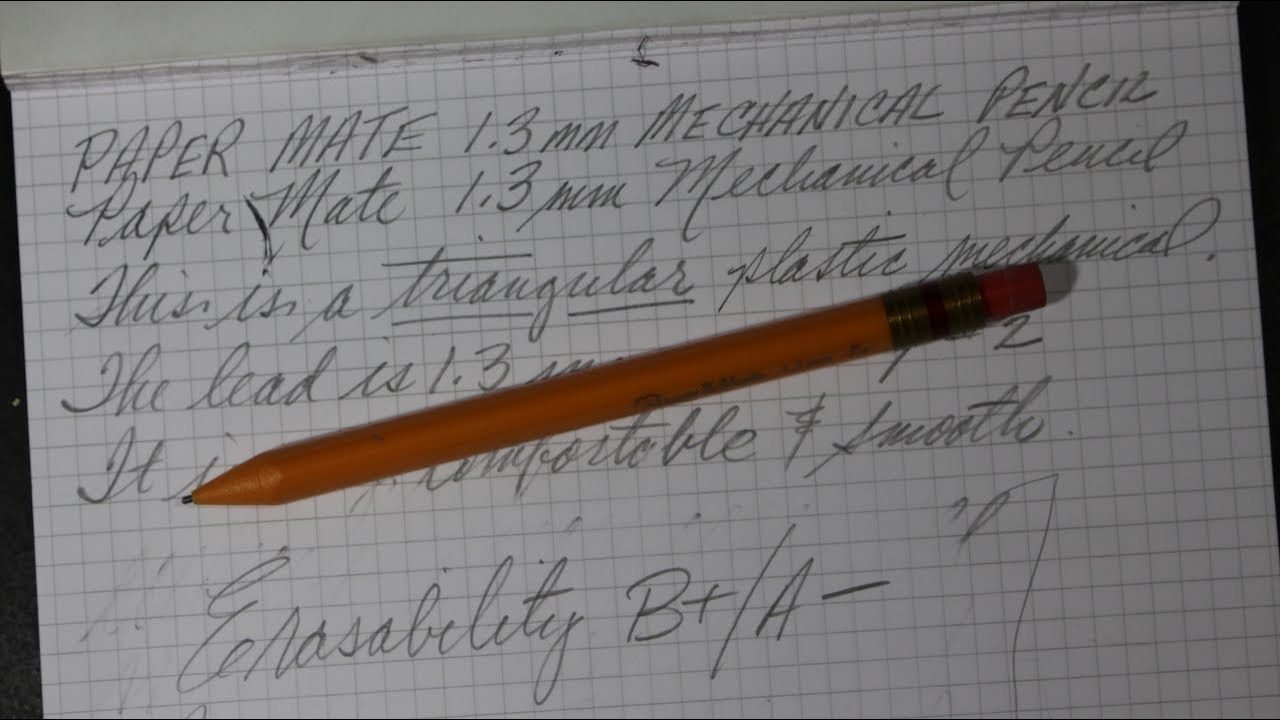 PAPER MATE 1.3mm MECHANICAL PENCIL
Paper Mate 1.3mm Mechanical Pencil
This is a triangular plastic mechanical.
The lead is 1.3 2
It comfortable & smooth.
Erasability B+/A-